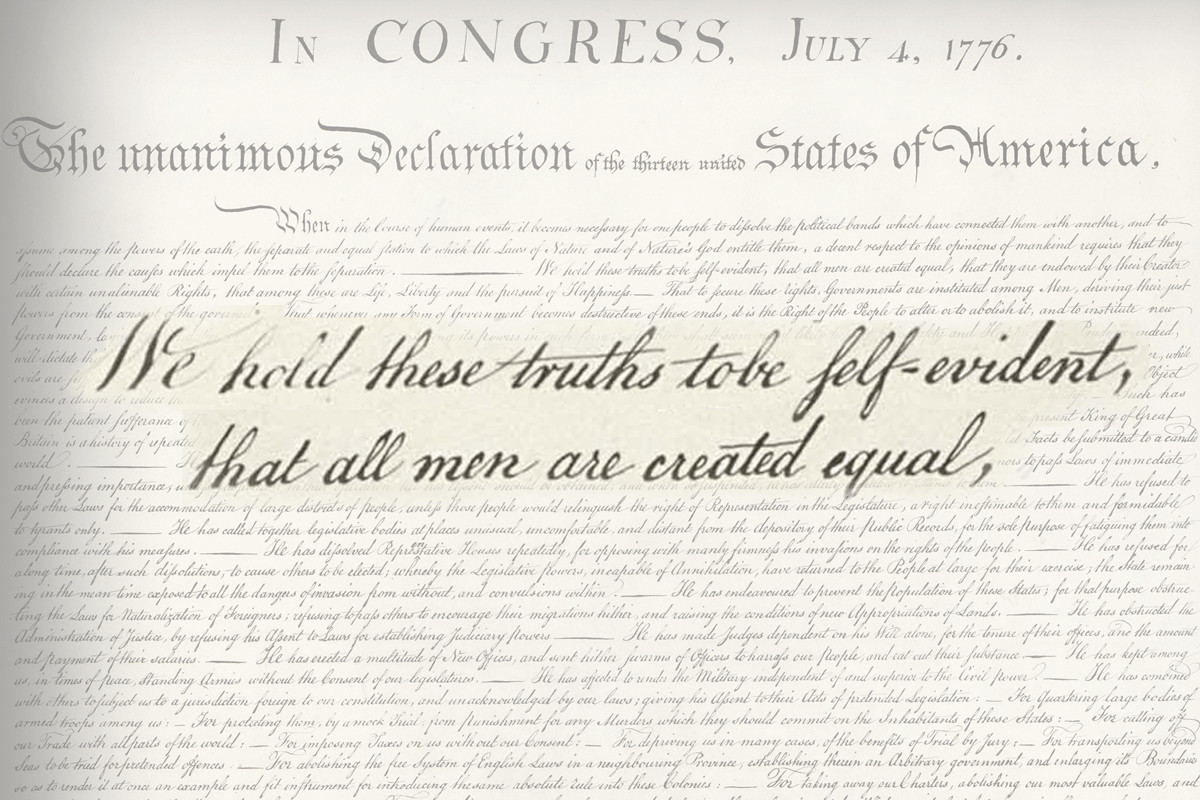 In CONGRESS, July 4, 1776.
The unanimous Declaration of the thirteen united States of America,
When in the Course of human events, it becomes neceſsary for one people to diſsolve the political bands which have connected them with another, and to
aſsume among the powers of the earth, the ſeparate and equal ſtation to which the Laws of Nature and of Nature's God entitle them, a decent reſpect to the opinions of mankind requires that they
ſhould declare the cauſes which impel them to the ſeparation. We hold these truths to be ſelf-evident, that all men are created equal, that they are endowed by their Creator
with certain unalienable Rights, that among these are Life, Liberty and the pursuit of Happineſs. — That to ſecure these rights, Governments are instituted among Men, deriving their just
powers from the consent of the governed That whenever any Form of Government becomes destructive of these ends, it is the Right of the People to alter or to abolish it, and to institute new
Government, indeed,
will dictate while
evils are object
evinces a design to reduce Such has
We hold these truths to be ſelf-evident,
that all men are created equal,
been the patient ſufferance present King of Great
Britain is a history of repeated Facts be ſubmitted to a candid
world. to paſs Laws of immediate
and preſsing importance, He has refused to
paſs other Laws for the accommodation of large districts of people, unleſs those people would relinquish the right of Representation in the Legislature, a right inestimable to them and formidable
to tyrants only. He has called together legislative bodies at places unusual, uncomfortable, and distant from the depository of their public Records, for the sole purpose of fatiguing them into
compliance with his meaſures. He has diſsolved Representative Houses repeatedly, for opposing with manly firmneſs his invasions on the rights of the people. He has refused for
a long time, after such diſsolutions, to cause others to be elected; whereby the Legislative powers, incapable of Annihilation, have returned to the People at large for their exercise; the State remain-
ing in the mean time exposed to all the dangers of invasion from without, and convulsions within. He has endeavoured to prevent the population of these States; for that purpose obstruc-
ting the Laws for Naturalization of Foreigners; refusing to paſs others to encourage their migrations hither, and raising the conditions of new Appropriations of Lands. He has obstructed the
Administration of Justice, by refusing his Aſsent to Laws for establishing Judiciary powers He has made Judges dependent on his Will alone, for the tenure of their offices, and the amount
and payment of their salaries. He has erected a multitude of New Offices, and sent hither swarms of Officers to harraſs our people, and eat out their substance. He has kept among
us, in times of peace, Standing Armies without the Consent of our legislatures. He has affected to render the Military independent of and superior to the Civil power. He has combined
with others to subject us to a jurisdiction foreign to our constitution, and unacknowledged by our laws; giving his Aſsent to their Acts of pretended Legislation: — For Quartering large bodies of
armed troops among us: — For protecting them, by a mock Trial, from punishment for any Murders which they should commit on the Inhabitants of these States: — For cutting off
our Trade with all parts of the world: — For imposing Taxes on us without our Consent: — For depriving us in many cases, of the benefits of Trial by Jury: — For transporting us beyond
Seas to be tried for pretended offences For abolishing the free System of English Laws in a neighbouring Province, establishing therein an Arbitrary government, and enlarging its Boundaries
so as to render it at once an example and fit instrument for introducing the same absolute rule into these Colonies: — For taking away our Charters, abolishing our most valuable Laws, and